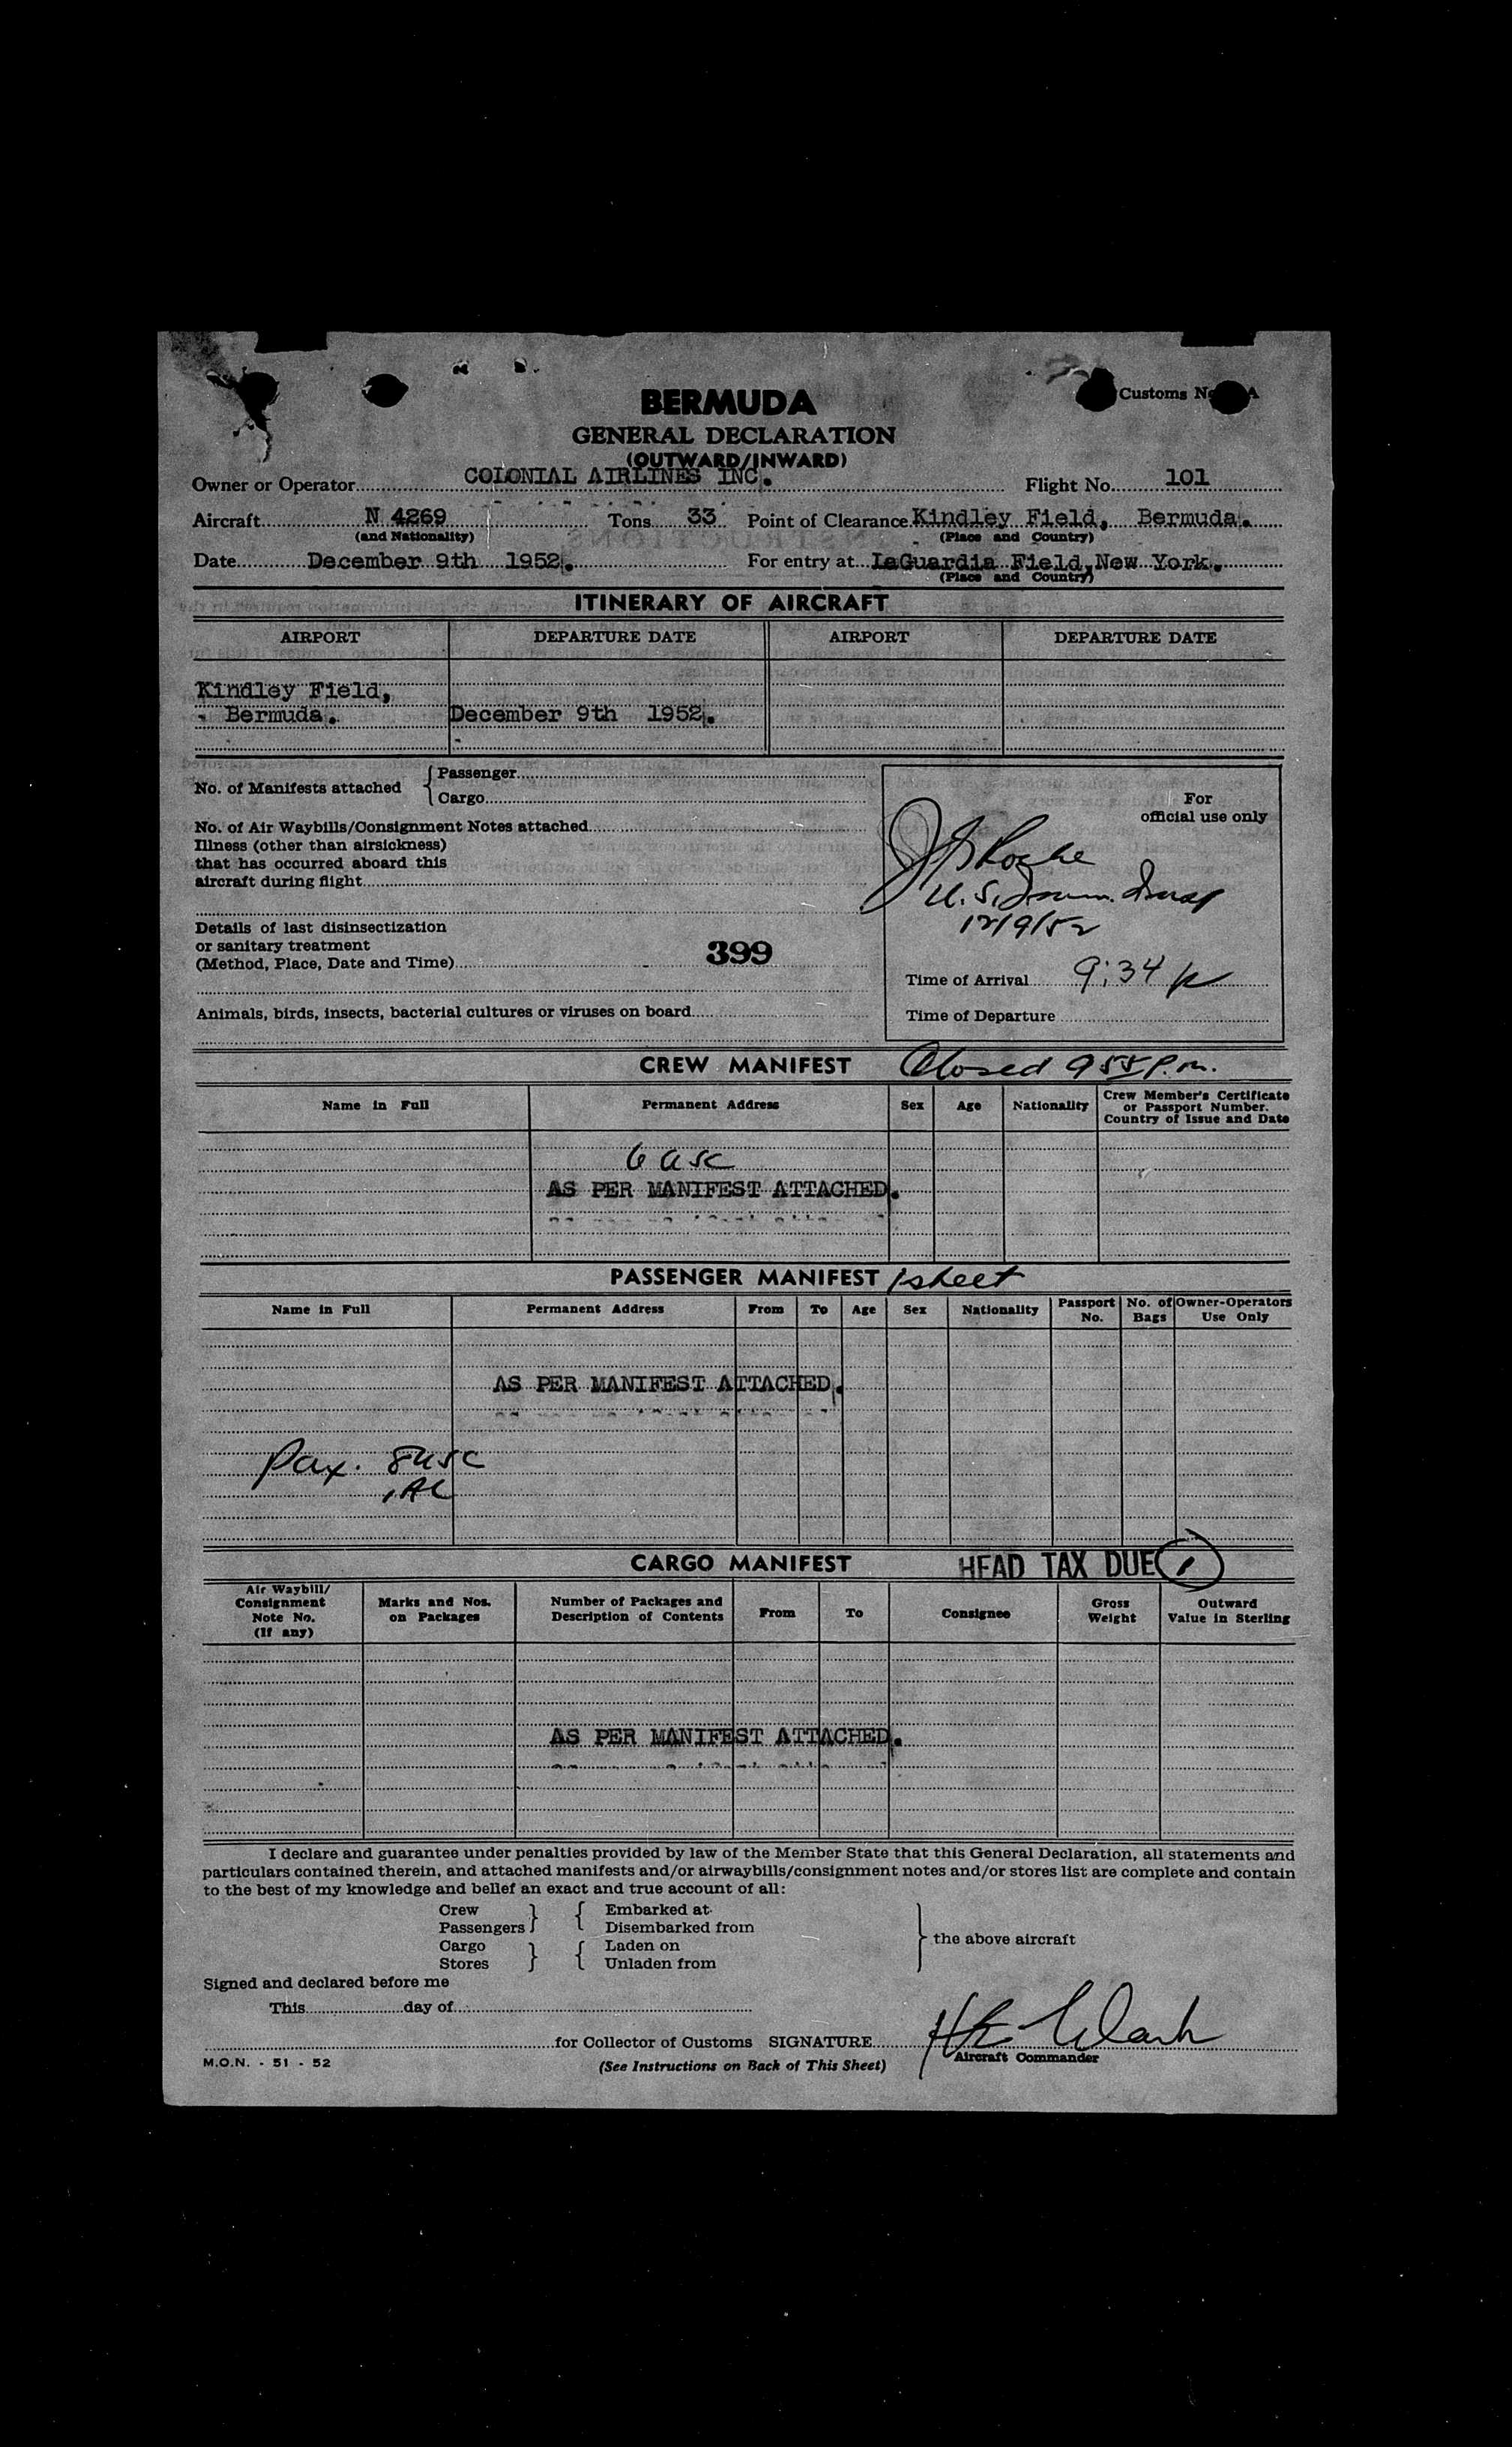 Customs No. A
BERMUDA
GENERAL DECLARATION
(OUTWARD/INWARD)
Owner or Operator COLONIAL AIRLINES INC. Flight No. 101
Aircraft N 4269 Tons 33 Point of Clearance Kindley Field, Bermuda.
(and Nationality) (Place and Country)
Date December 9th 1952. For entry at LaGuardia Field, New York.
(Place and Country)
ITINERARY OF AIRCRAFT
AIRPORT DEPARTURE DATE AIRPORT DEPARTURE DATE
Kindley Field,
Bermuda. December 9th 1952.
No. of Manifests attached { Passenger
Cargo
No. of Air Waybills/Consignment Notes attached
Illness (other than airsickness)
that has occurred aboard this
aircraft during flight
Details of last disinsectization
or sanitary treatment
(Method, Place, Date and Time)
399
Animals, birds, insects, bacterial cultures or viruses on board
For
official use only
Roche
U.S. Immn. Insp
12/9/52
Time of Arrival 9:34 p
Time of Departure
CREW MANIFEST Closed 9 55 P.m.
Name in Full Permanent Address Sex Age Nationality Crew Member's Certificate or Passport Number. Country of Issue and Date
6 USC
AS PER MANIFEST ATTACHED.
PASSENGER MANIFEST 1 sheet
Name in Full Permanent Address From To Age Sex Nationality Passport No. No. of Bags Owner-Operators Use Only
AS PER MANIFEST ATTACHED.
Pax. 8 USC
1 AL
CARGO MANIFEST HEAD TAX DUE 1
Air Waybill/ Consignment Note No. (If any) Marks and Nos. on Packages Number of Packages and Description of Contents From To Consignee Gross Weight Outward Value in Sterling
AS PER MANIFEST ATTACHED.
I declare and guarantee under penalties provided by law of the Member State that this General Declaration, all statements and
particulars contained therein, and attached manifests and/or airwaybills/consignment notes and/or stores list are complete and contain
to the best of my knowledge and belief an exact and true account of all:
Crew } { Embarked at
Passengers Disembarked from
Cargo } { Laden on
Stores Unladen from
} the above aircraft
Signed and declared before me
This day of
for Collector of Customs SIGNATURE Clark
Aircraft Commander
M.O.N. - 51 - 52 (See Instructions on Back of This Sheet)